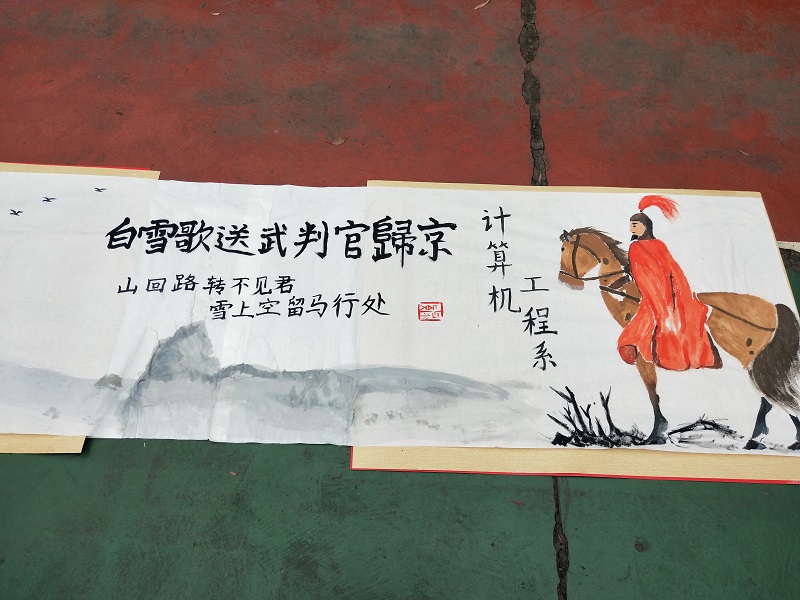 白雪歌送武判官歸京
山回路转不见君
雪上空留马行处
计算机
工程系